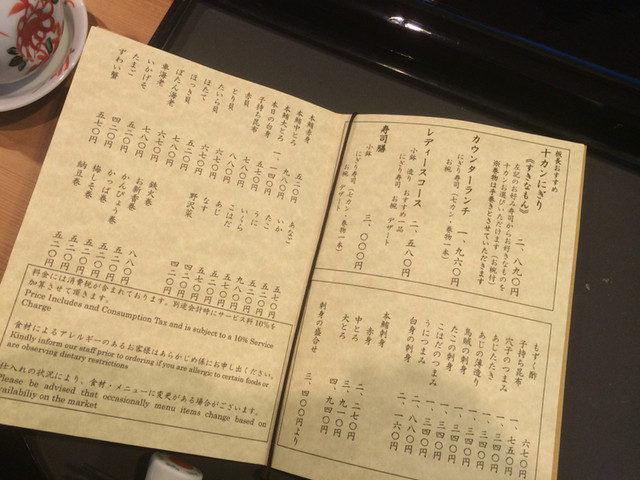 板長おすすめ
十カンにぎり 二、八九〇円
《すきなもん》
左記のお好み寿司からお好きなものを
十カンお選びいただけます（お椀付）
※巻物は手巻きとさせていただきます
カウンターランチ 一、九六〇円
にぎり寿司（七カン・巻物一本）
お椀
レディースコース 二、五八〇円
小鉢 造り おすすめ一品
にぎり寿司 お椀 デザート
寿司膳 三、〇〇〇円
小鉢 にぎり寿司（七カン・巻物一本）
お椀 デザート
もずく酢 六七〇円
子持ち昆布 一、七五〇円
穴子のつまみ 一、三四〇円
あじたたき 一、三四〇円
あじの薄造り 一、三四〇円
鳥賊の刺身 一、三四〇円
たこの刺身 一、三四〇円
こはだのつまみ 一、三四〇円
うにつまみ 二、八八〇円
白身の刺身 二、一六〇円
本鮪刺身
赤身 二、二七〇円
中とろ 三、九一〇円
大とろ 四、九四〇円
刺身の盛合せ 三、四〇〇円より
本鮪赤身 五二〇円
本鮪中とろ
本鮪大とろ 一、一四〇円
本日の白身
子持ち昆布
赤貝
とり貝
たいら貝
ほたて
ほっき貝
ぼたん海老
車海老
いかげそ
たまご
ずわい蟹 五七〇円
あなご
いか
たこ
うに
いくら
こはだ
あじ
なす
野沢菜
鉄火巻
お新香巻
かんぴょう巻
かっぱ巻
梅しそ巻
納豆巻
料金には消費税が含まれております。別途会計時にサービス料10％を
加算させて頂きます。
Price Includes and Consumption Tax and is subject to a 10% Service
Charge
食材によるアレルギーのあるお客様はあらかじめ係にお申し出ください。
Kindly inform our staff prior to ordering if you are allergic to certain foods or
are observing dietary restrictions
仕入れの状況により、食材・メニューに変更がある場合がございます。
Please be advised that occasionally menu items change based on
availability on the market